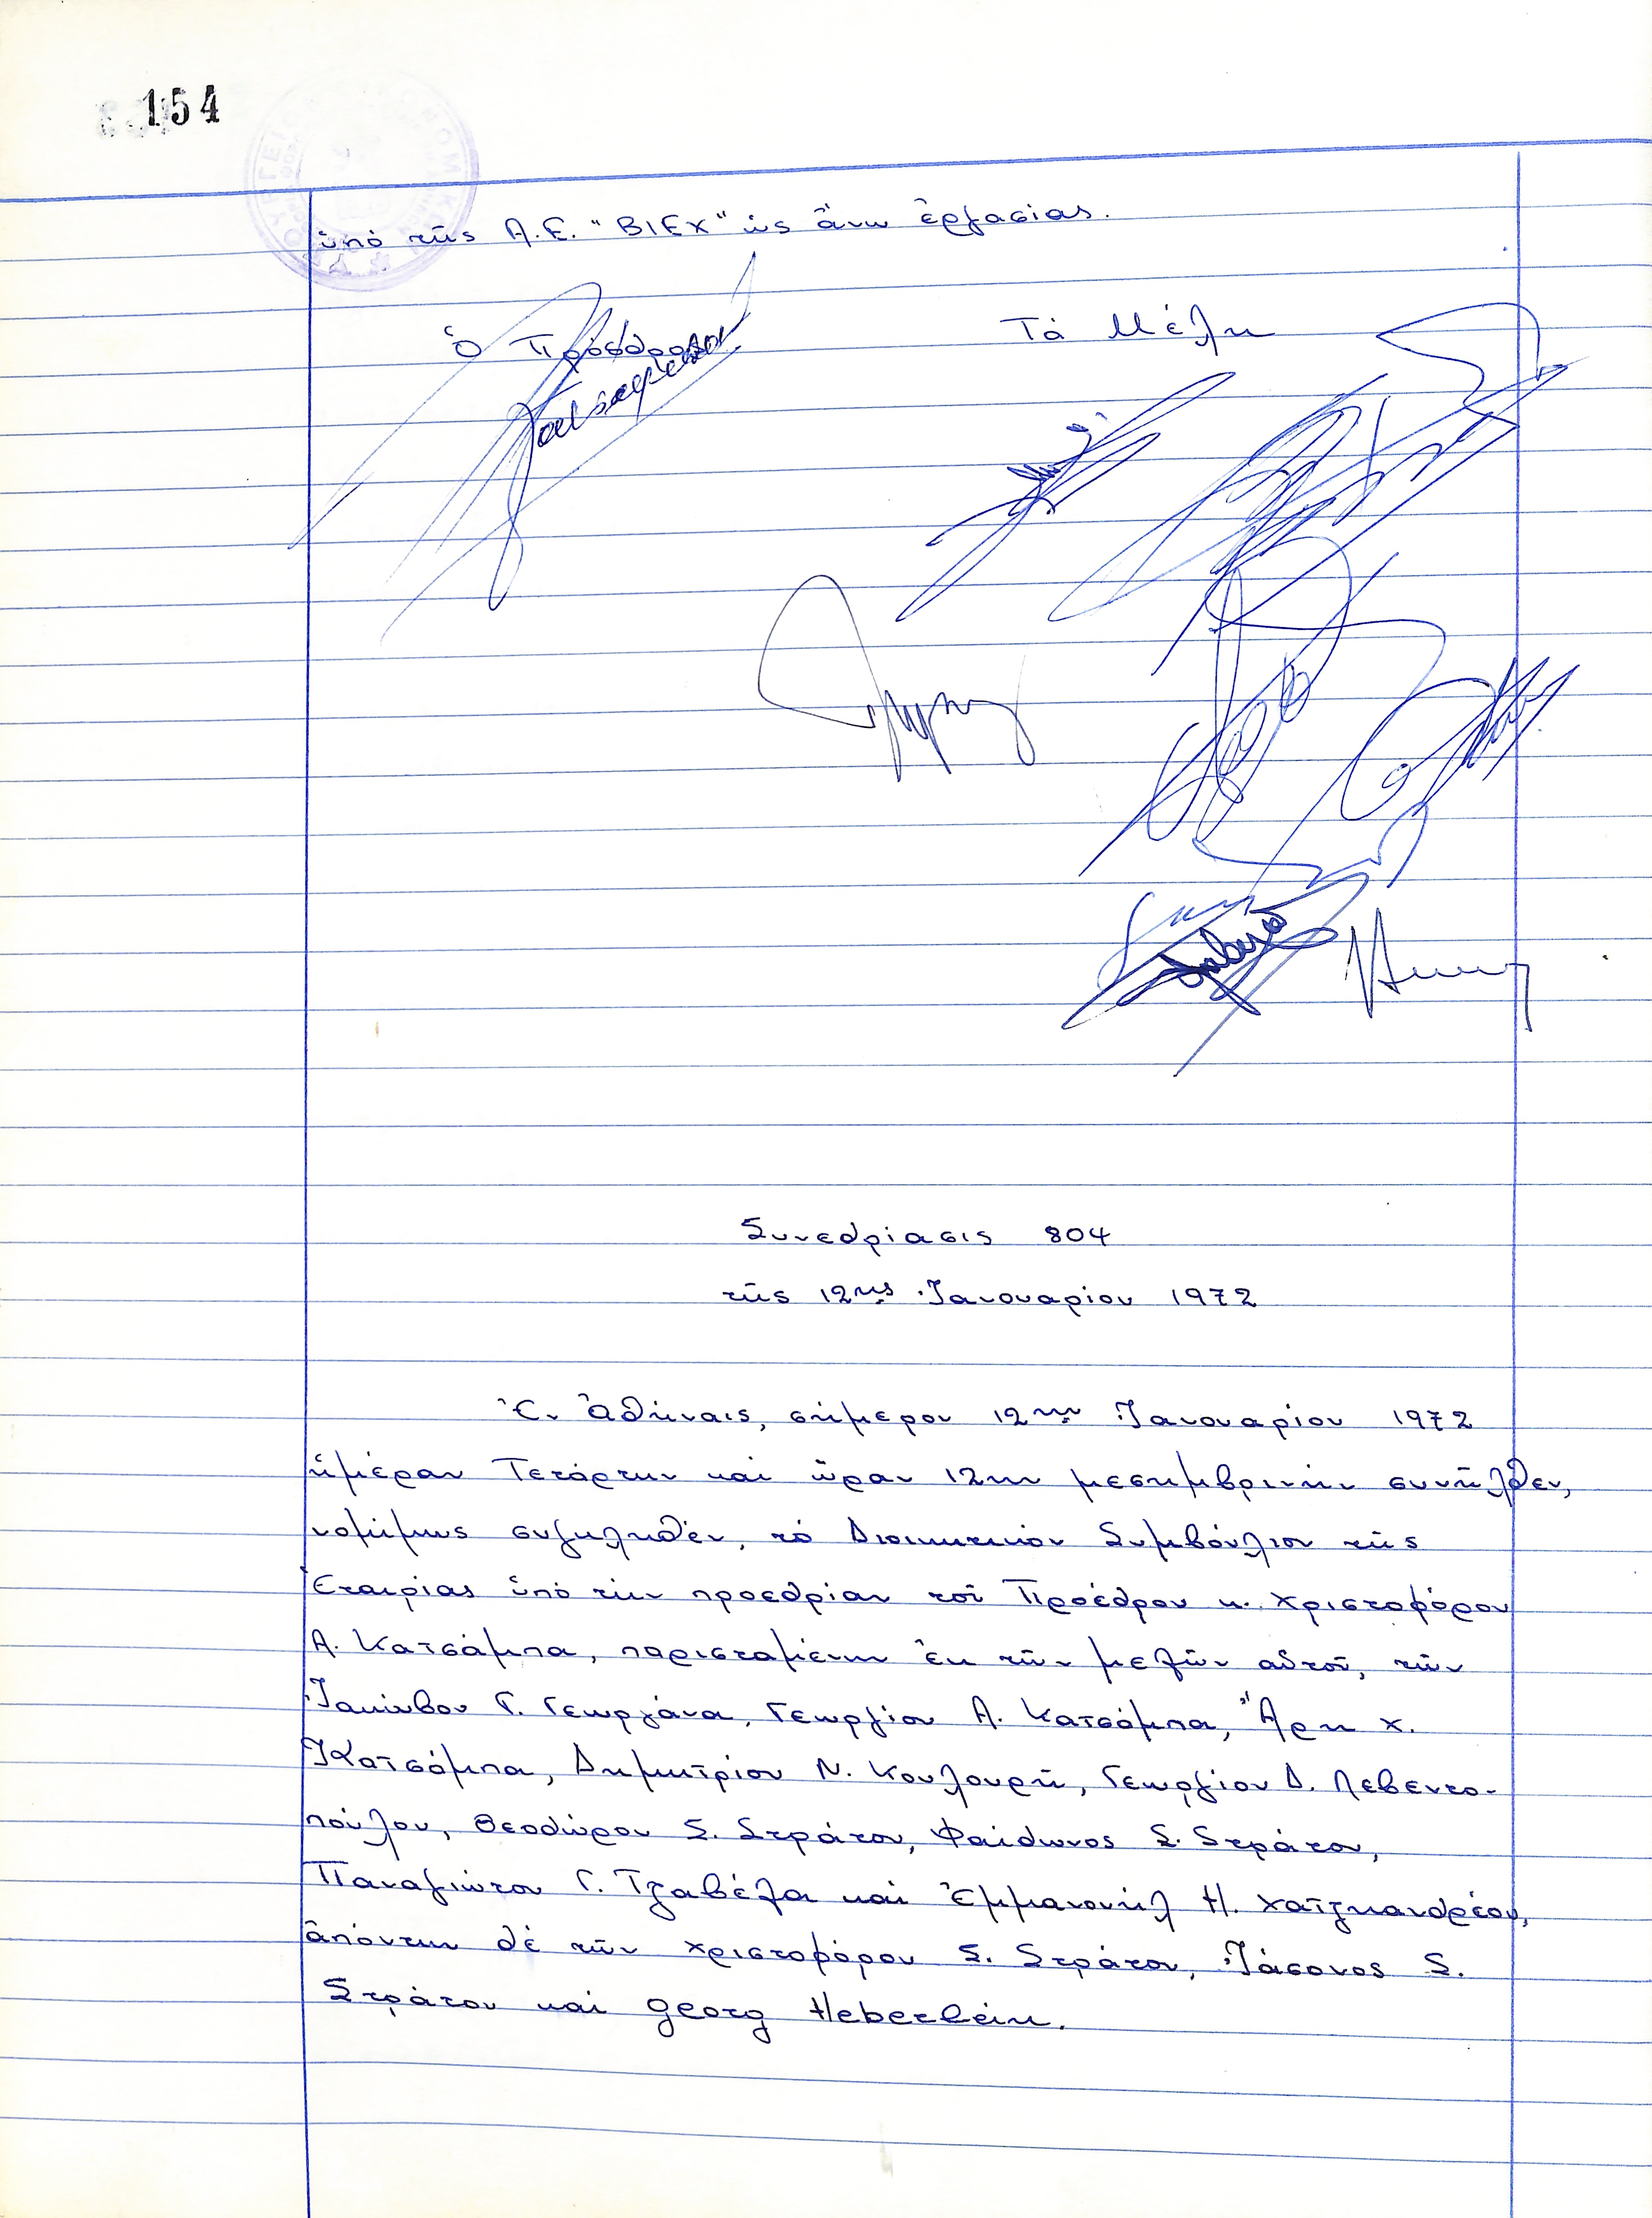 154
ὑπὸ τῆς Α.Ε. "ΒΙΕΧ" ὡς ἄνω ἐργασίας.
Ὁ Πρόεδρος Τὰ Μέλη
Συνεδρίασις 804
τῆς 12ης Ἰανουαρίου 1972
Ἐν Ἀθήναις, σήμερον 12ην Ἰανουαρίου 1972
ἡμέραν Τετάρτην καὶ ὥραν 12ην μεσημβρινήν συνῆλθεν,
νομίμως συγκληθέν, τὸ Διοικητικὸν Συμβούλιον τῆς
Ἑταιρίας ὑπὸ τὴν προεδρίαν τοῦ Προέδρου κ. Χριστοφόρου
Α. Κατσάμπα, παρισταμένων ἐκ τῶν μελῶν αὐτοῦ, τῶν
Ἰακώβου Γ. Γεωργάνα, Γεωργίου Α. Κατσάμπα, Ἄρη Χ.
Κατσάμπα, Δημητρίου Ν. Κουλουρῆ, Γεωργίου Δ. Λεβεντο-
πούλου, Θεοδώρου Σ. Στράτου, Φαίδωνος Σ. Στράτου,
Παναγιώτου Γ. Τζαβέλα καὶ Ἐμμανουήλ Η. Χατζηανδρέου,
ἀπόντων δὲ τῶν Χριστοφόρου Σ. Στράτου, Ἰάσονος Σ.
Στράτου καὶ Georg Heberlein.